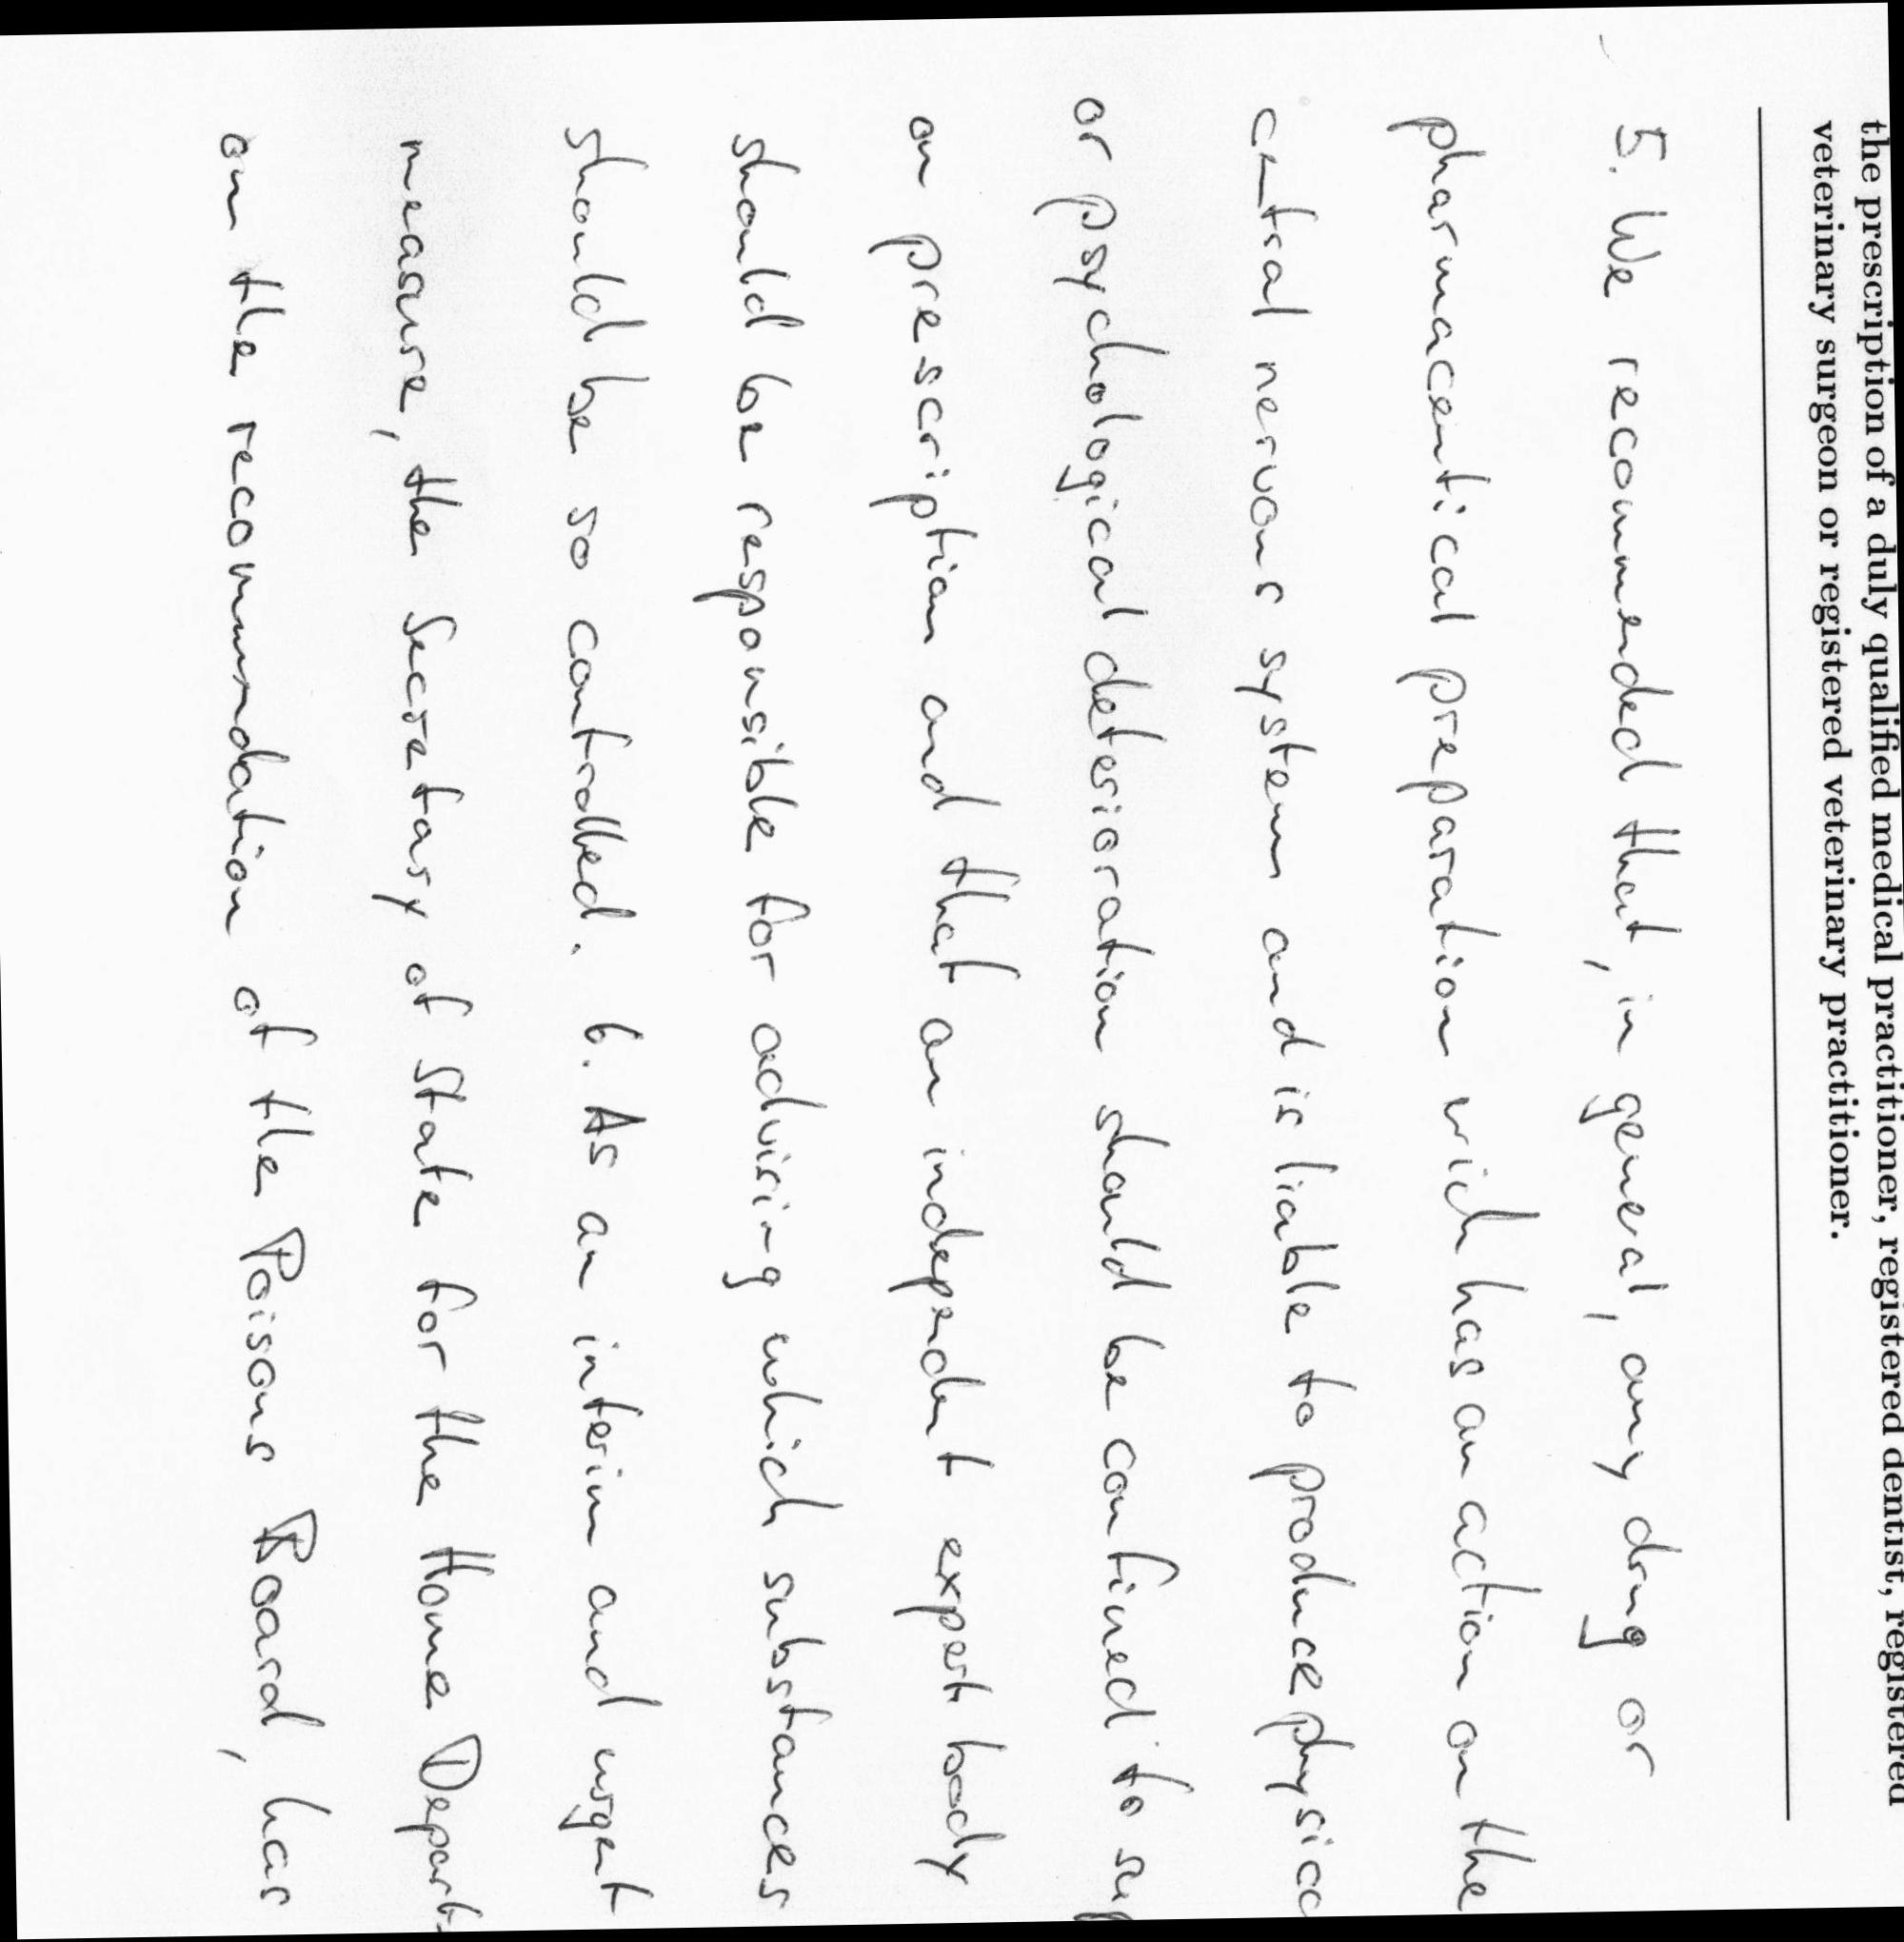 the prescription of a duly qualified medical practitioner, registered dentist, registered
veterinary surgeon or registered veterinary practitioner.
5. We recommended that, in general, any drug or
pharmacentical preparation wich has an action on the
central nervous system and is liable to produce physica
or psychological deterioration should be confined to sup
on prescription and that an independent expert body
should be responsible for advising which substances
should be so controlled. 6. As an interim and urgent
measure, the Secretary of State for the Home Depart-
on the recommendation of the Poisons Board, has